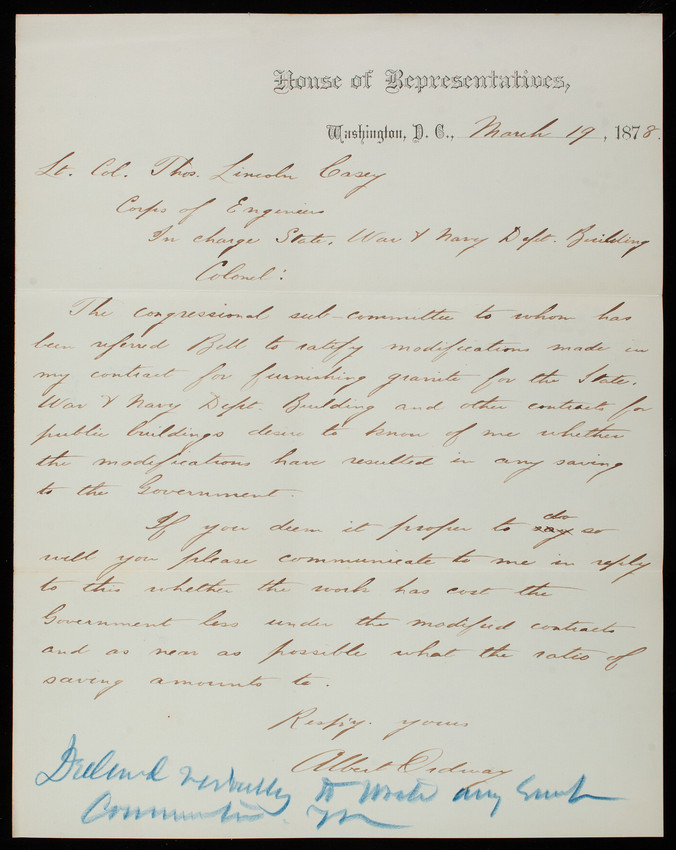 House of Representatives,
Washington, D. C., March 19, 1878.
Lt. Col. Thos. Lincoln Casey
Corps of Engineers
In charge State, War & Navy Dept. Building
Colonel:
The congressional sub-committee to whom has
been referred Bill to ratify modifications made in
my contract for furnishing granite for the State,
War & Navy Dept. Building and other contracts for
public buildings desire to know of me whether
the modifications have resulted in any saving
to the Government.
If you deem it proper to say do so
will you please communicate to me in reply
to this whether the work has cost the
Government less under the modified contracts
and as near as possible what the ratio of
saving amounts to.
Resp'y. yours
Albert Ordway
Declined verbally to write any such